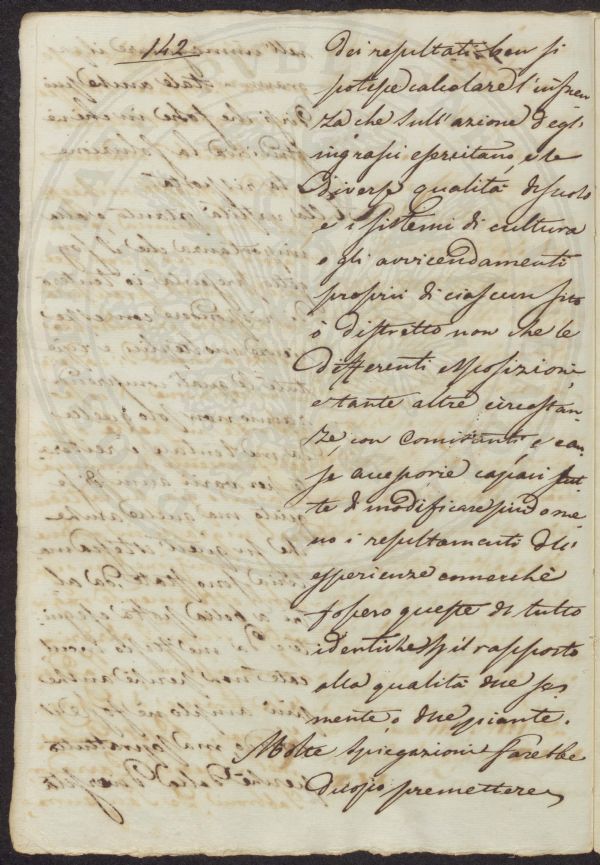 142
dei resultati ben si
potesse calcolare l'influen
za che sull'azione degl'
ingrassi esercitano, e le
diverse qualità di suolo
e i sistemi di cultura
o gli avvicendamenti
proprii di ciascun sito
o distretto non che le
differenti esposizioni,
e tante altre circostan
ze, con comitanti, e cau
se accessorie capaci tut
te di modificare più o me
no i resultamenti di
esperienze comecchè
fossero queste di tutto
identiche il rapporto
alla qualità due se
mente, o due piante.
Molte spiegazioni sarebbe
duopo premettere